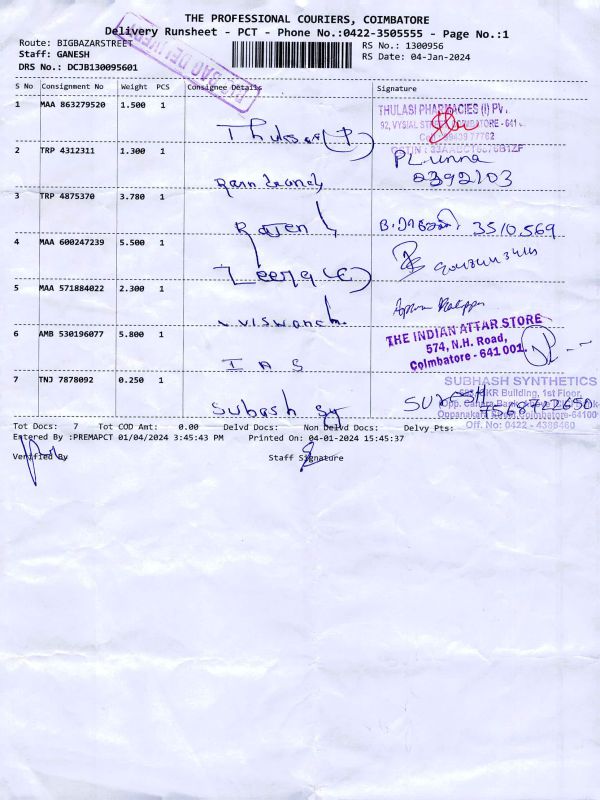 THE PROFESSIONAL COURIERS, COIMBATORE
Delivery Runsheet - PCT - Phone No.:0422-3505555 - Page No.:1
Route: BIGBAZARSTREET
RS No.: 1300956
Staff: GANESH
RS Date: 04-Jan-2024
DRS No.: DCJB130095601
S No Consignment No Weight PCS Consignee Details Signature
1 MAA 863279520 1.500 1
THULASI PHARMACIES (I) PV.
2 TRP 4312311 1.300 1
3 TRP 4875370 3.780 1
Rajen
3510569
4 MAA 600247239 5.500 1
5 MAA 571884022 2.300 1
6 AMB 530196077 5.800 1
I A S
THE INDIAN ATTAR STORE
574, N.H. Road,
Coimbatore - 641 001.
7 TNJ 7878092 0.250 1
Subash Sy
SUBHASH SYNTHETICS
KKR Building, 1st Floor,
Off. No: 0422 - 4386460
Tot Docs: 7 Tot COD Amt: 0.00 Delvd Docs: Non Delvd Docs: Delvy Pts:
Entered By :PREMAPCT 01/04/2024 3:45:43 PM Printed On: 04-01-2024 15:45:37
Verified By Staff Signature